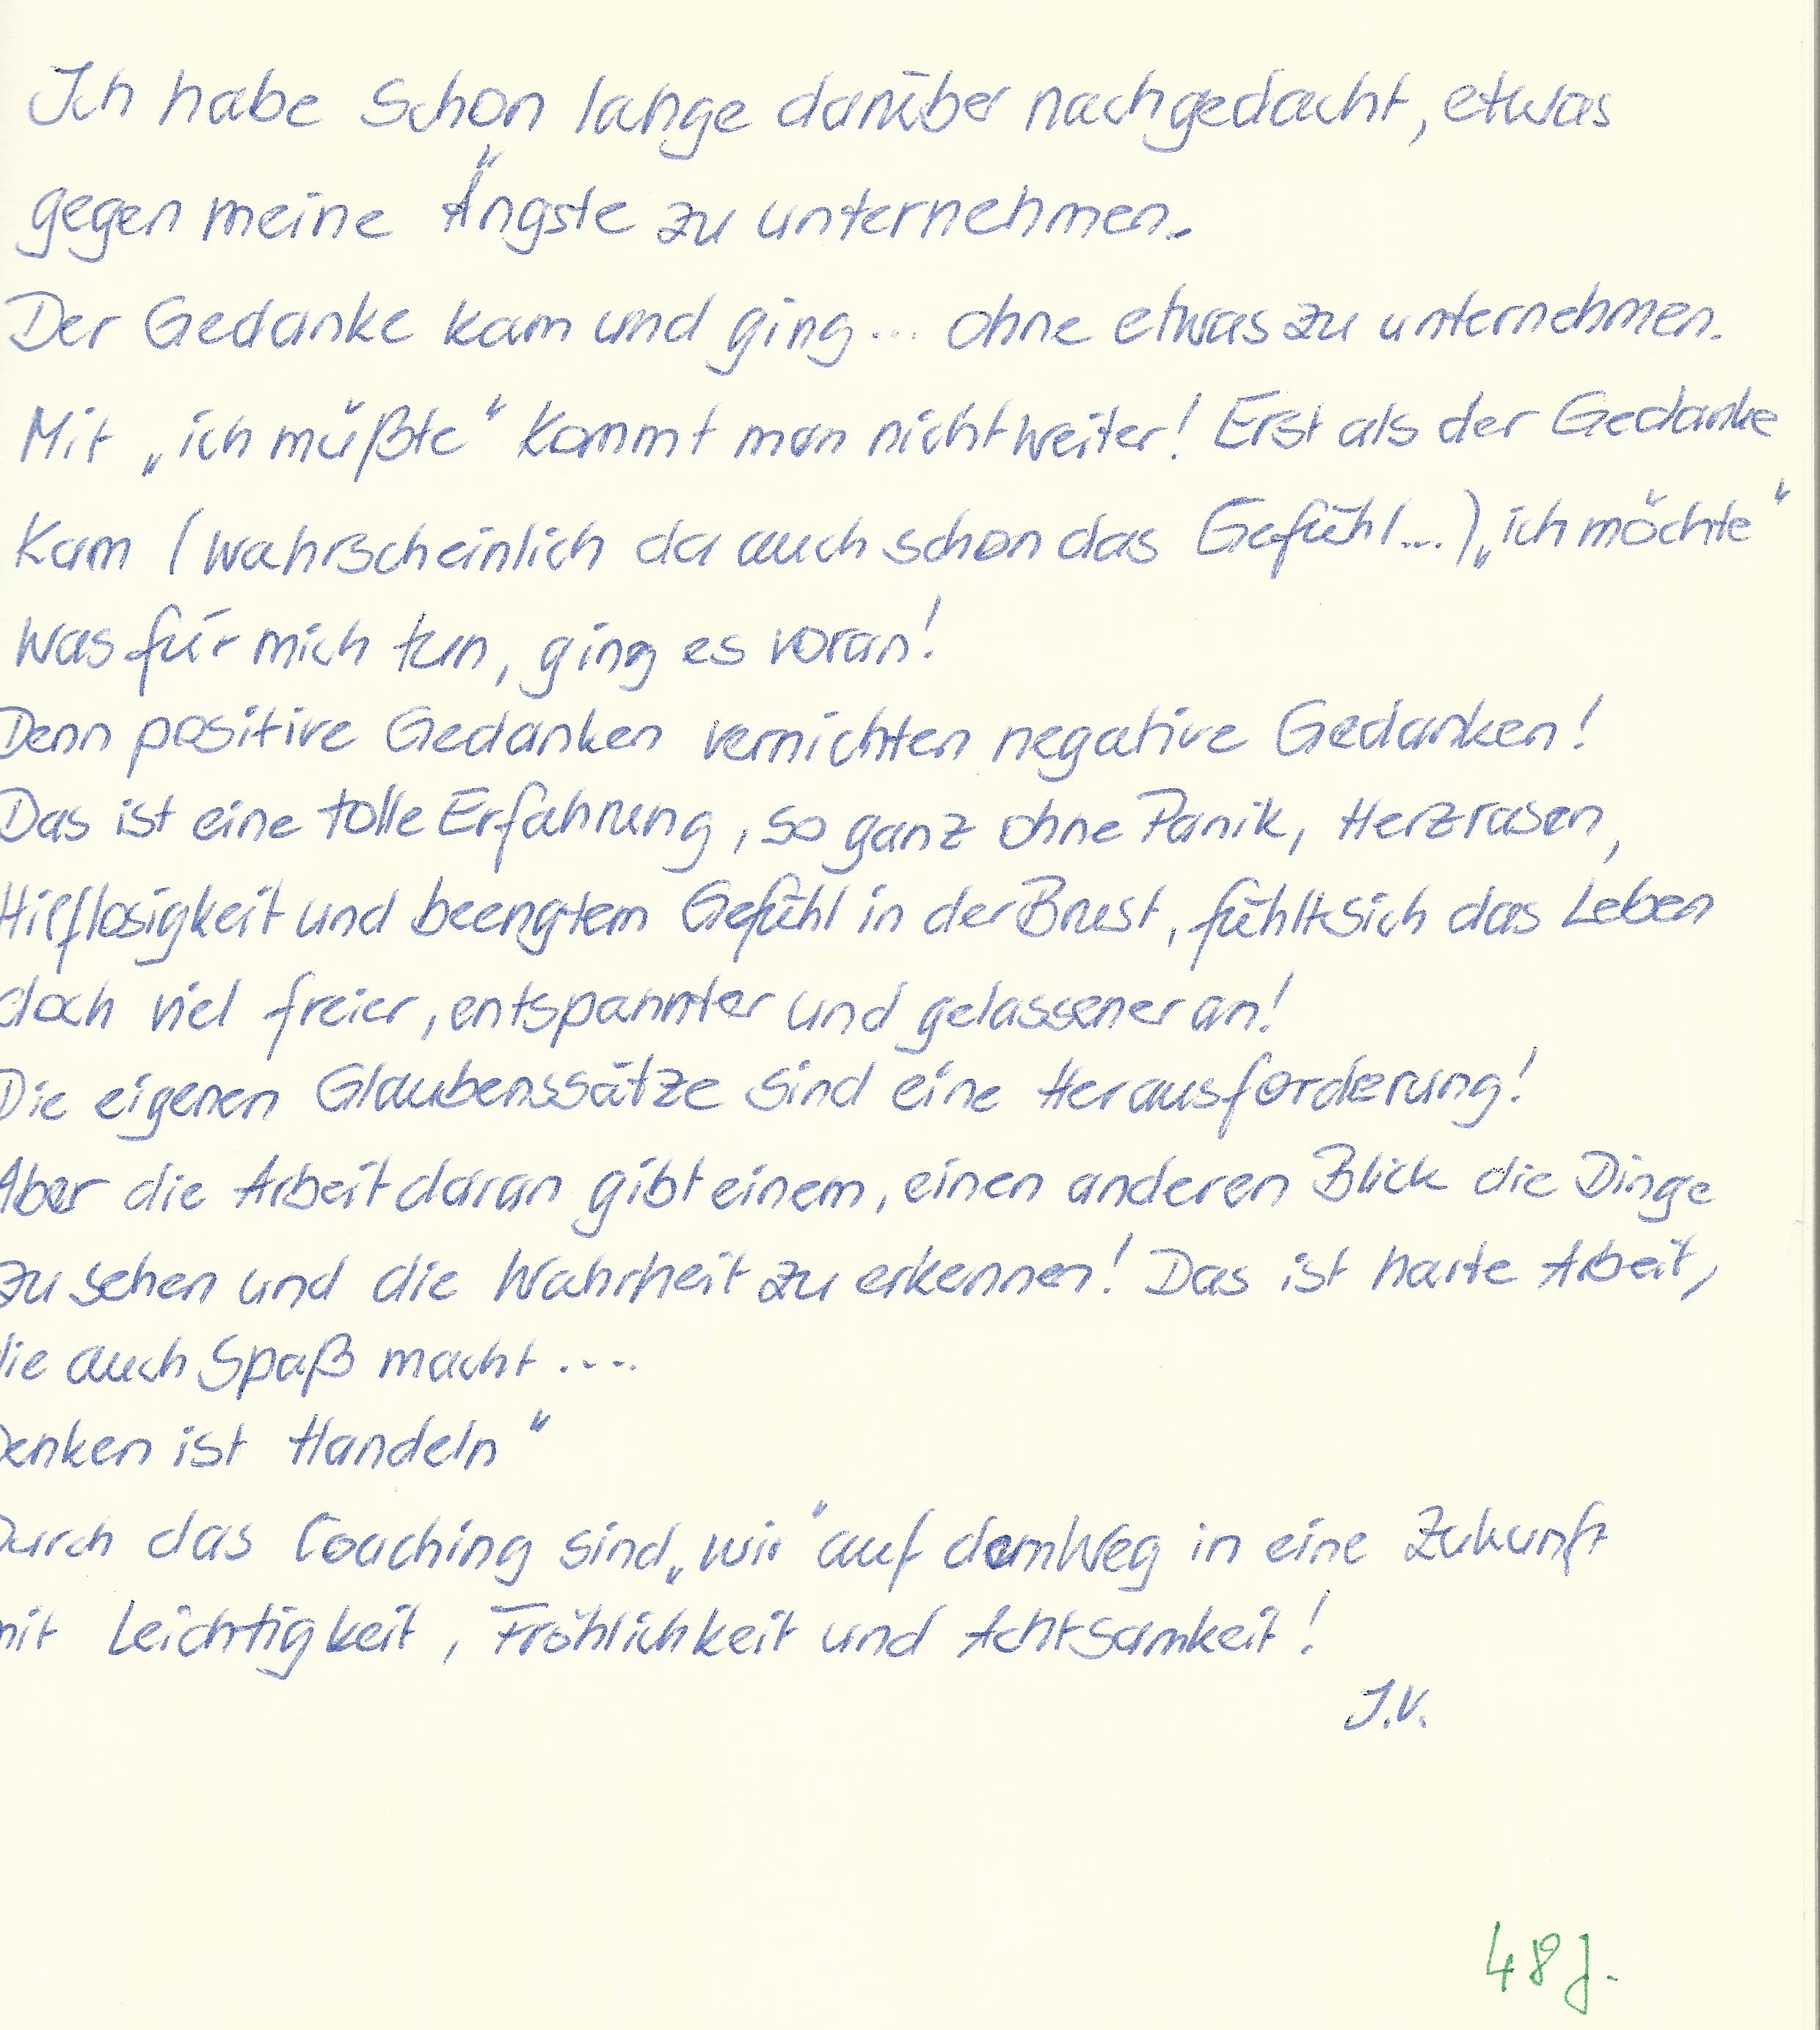 Ich habe schon lange darüber nachgedacht, etwas
gegen meine Ängste zu unternehmen.
Der Gedanke kam und ging... ohne etwas zu unternehmen.
Mit „ich müßte“ kommt man nicht weiter! Erst als der Gedanke
kam (wahrscheinlich da auch schon das Gefühl...) „ich möchte“
was für mich tun, ging es voran!
Denn positive Gedanken vernichten negative Gedanken!
Das ist eine tolle Erfahrung, so ganz ohne Panik, Herzrasen,
Hilflosigkeit und beengtem Gefühl in der Brust, fühlt sich das Leben
doch viel freier, entspannter und gelassener an!
Die eigenen Glaubenssätze sind eine Herausforderung!
Aber die Arbeit daran gibt einem, einen anderen Blick die Dinge
zu sehen und die Wahrheit zu erkennen! Das ist harte Arbeit,
die auch Spaß macht ....
Denken ist Handeln“
Durch das Coaching sind „wir“ auf dem Weg in eine Zukunft
mit Leichtigkeit, Fröhlichkeit und Achtsamkeit!
J.V.
48 J.